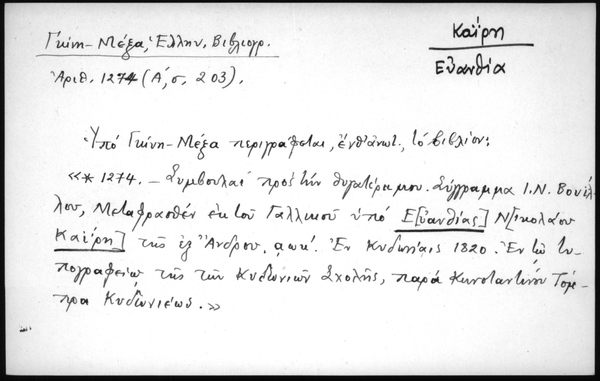 Γκίνη-Μέξα, Ἑλλην. Βιβλιογρ.
Ἀριθ. 1274 (Α΄, σ. 203).
Καΐρη
Εὐανθία
Ὑπό Γκίνη-Μέξα περιγράφεται, ἐνθ' ἀνωτ., τό βιβλίον:
«* 1274. – Συμβουλαί πρός τήν θυγατέρα μου. Σύγγραμμα Ι.Ν. Βουίλ-
λου, Μεταφρασθέν ἐκ τοῦ Γαλλικοῦ ὑπό Ε[ὐανθίας] Ν[ικολάου
Καΐρη] τῆς ἐξ Ἄνδρου, αωκ΄. Ἐν Κυδωνίαις 1820. Ἐν τῷ τυ-
πογραφείῳ τῆς τῶν Κυδωνιῶν Σχολῆς, παρά Κωνσταντίνου Τόμ-
πρα Κυδωνιέως.»